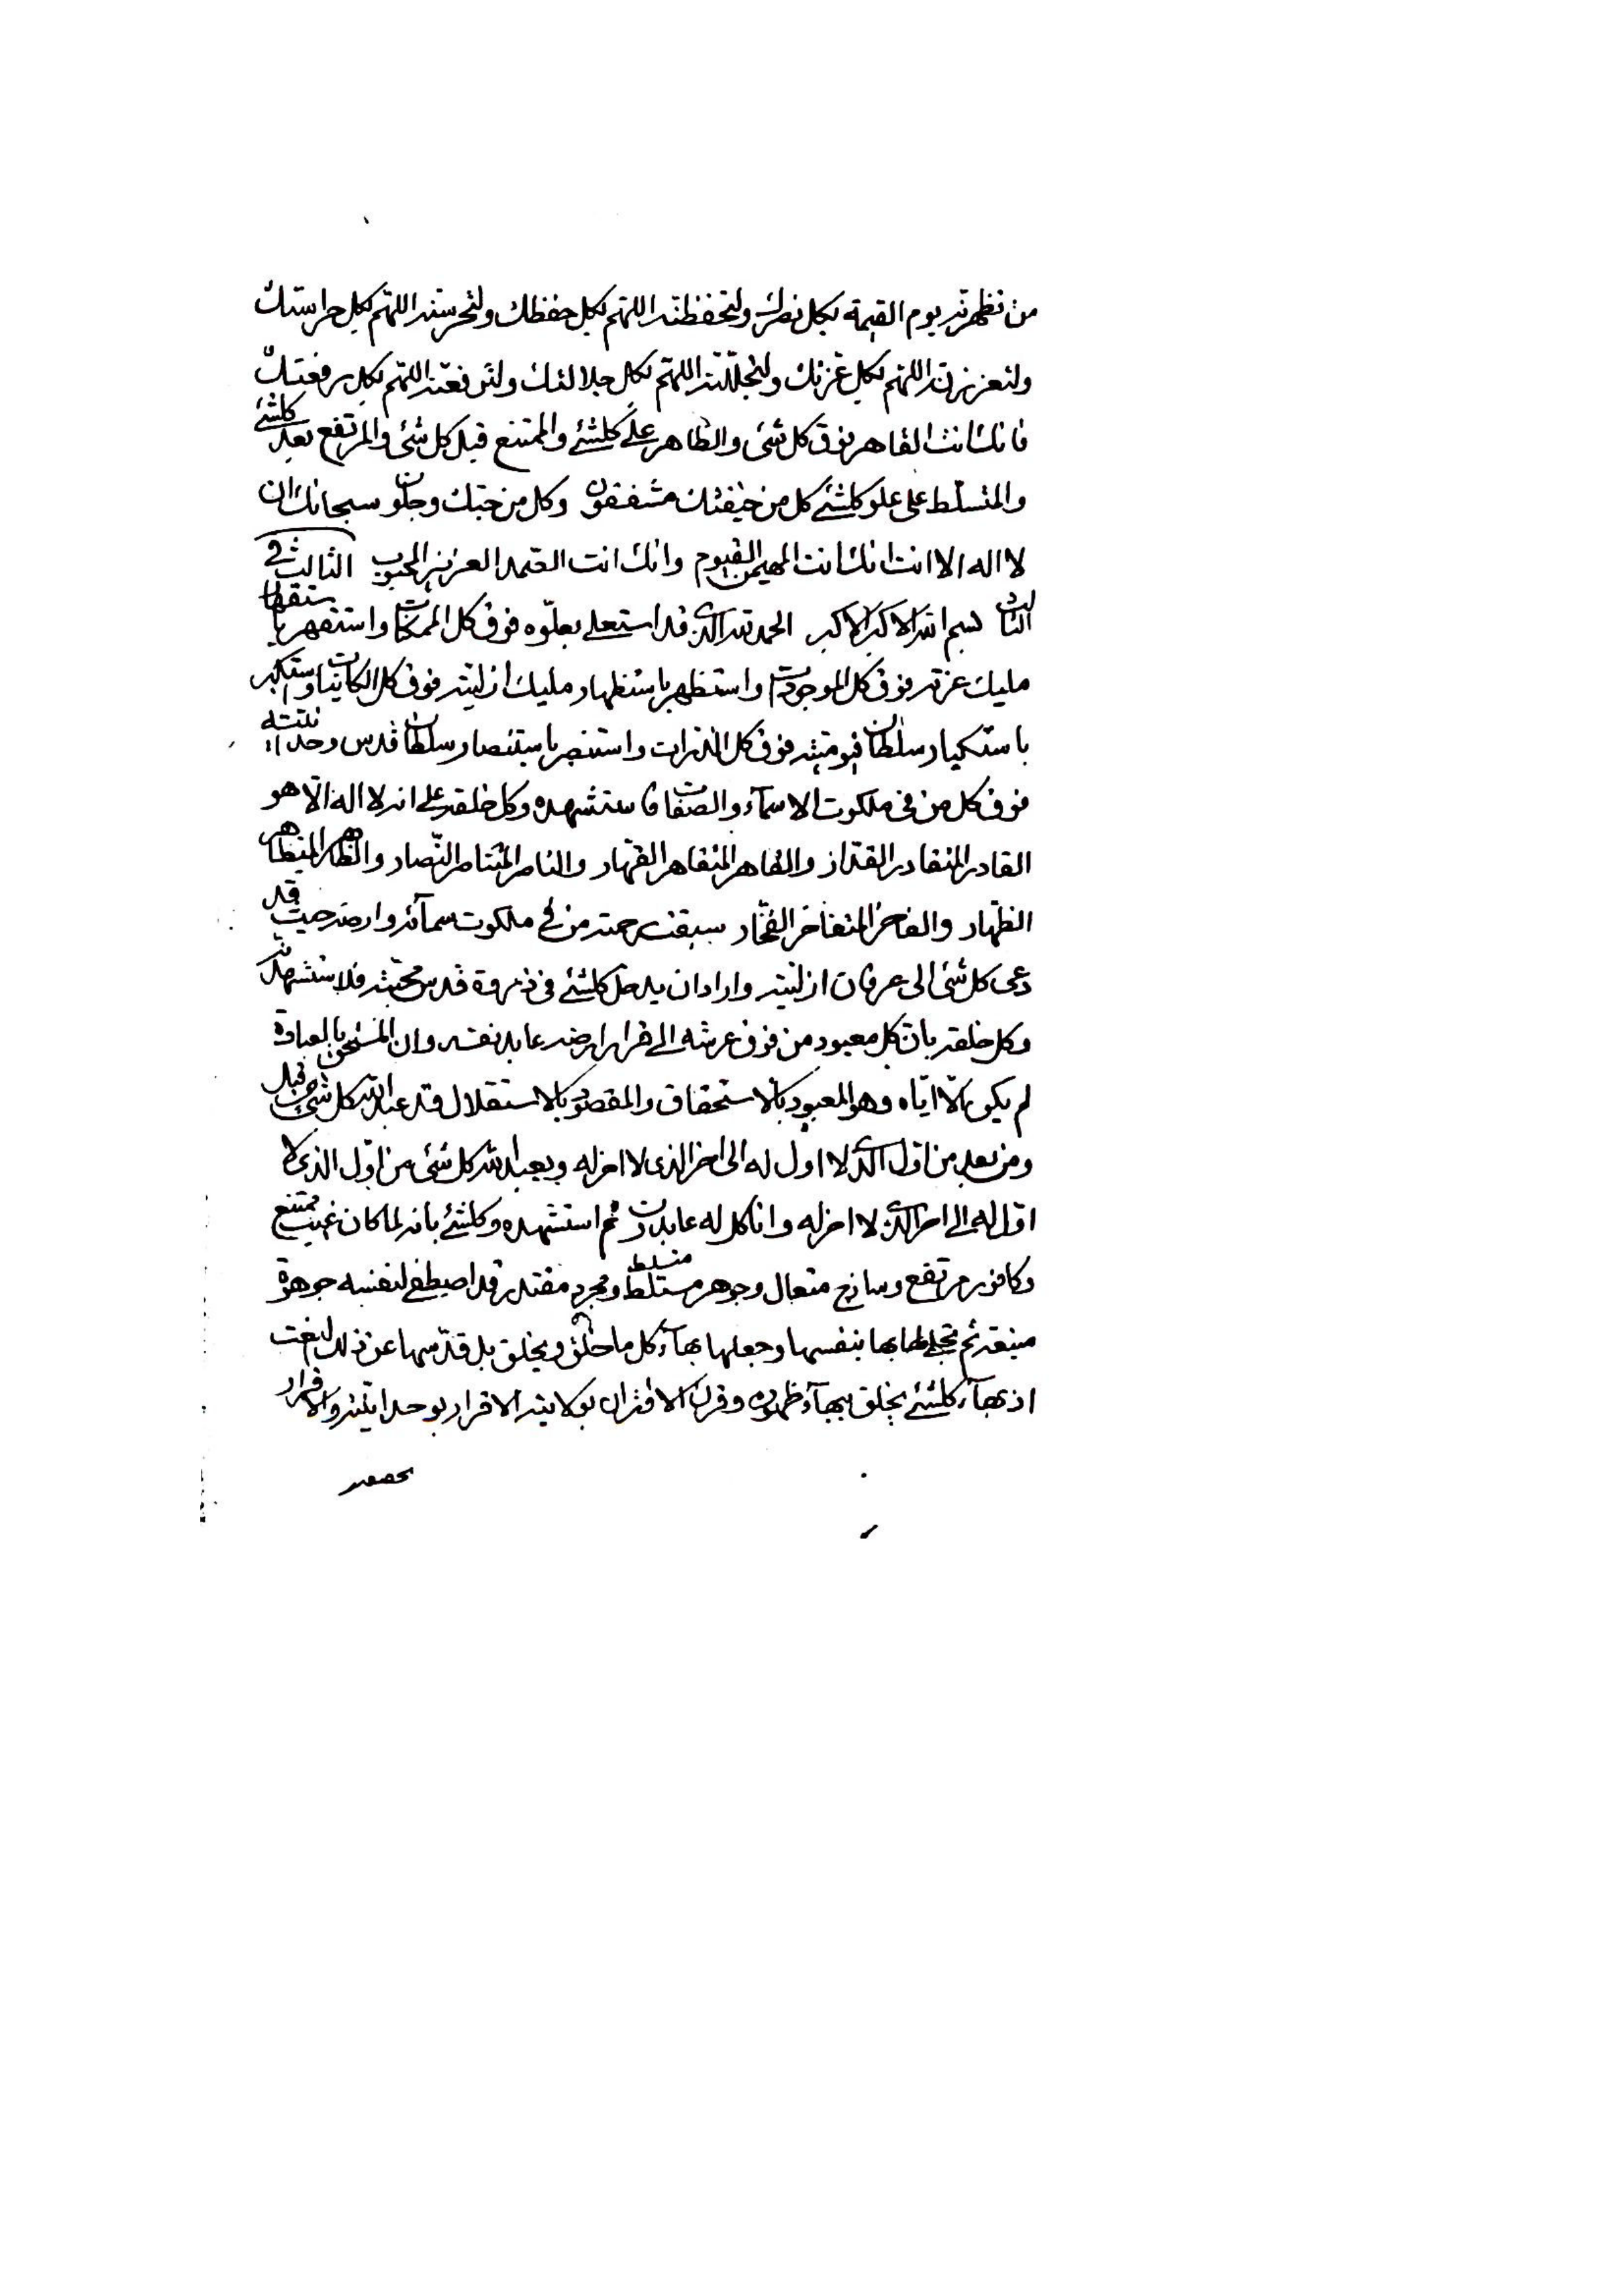 من تظهرنه يوم القيمة بكل نصرك ولتحفظنه اللهم بكل حفظك ولتحرسنه اللهم بكل حراستك
ولتعززنه اللهم بكل عزتك ولتجللنه اللهم بكل جلالتك ولترفعنه اللهم بكل رفعتك
فانك انت القاهر فوق كل شئ والظاهر على كلشئ والممتنع قبل كل شئ والمرتفع بعد كلشئ
والمتسلط على علو كلشئ كل من خيفتك مشفقون وكل من خشيتك وجلون سبحانك ان
لا اله الا انت انك انت المهيمن القيوم وانك انت الصمد العزيز المحبوب الثالث في
الثالث بسم الله الاكبر الاكبر الحمد لله الذي قد استعلى بعلوه فوق كل الممكنات واستقهر باستقهار
مليك عزته فوق كل الموجودات واستظهر باستظهار مليك ازليته فوق كل الكاينات واستكبر
باستكبار سلطان قيوميته فوق كل الذرات واستنصر باستنصار سلطان قدس وحدانيته
فوق كل من في ملكوت الاسماء والصفات فاستشهده وكل خلقه على انه لا اله الا هو
القادر المتقادر القدار والقاهر المتقاهر القهار والناصر المتناصر النصار والظاهر المتظاهر
الظهار والفاخر المتفاخر الفخار سبقت رحمته من في ملكوت سمائه وارضه حيث قد
دعى كل شئ الى عرفان ازليته واراد ان يدخل كلشئ في ذروة قدس محبته فلاستشهدنه
وكل خلقه بان كل معبود من فوق عرشه الى قرار ارضه عابد نفسه وان المستحق بالعبادة
لم يكن الا اياه وهو المعبود بالاستحقاق والمقصود بالاستقلال قد عبد الله كل شئ من قبل
ومن بعد من اول الذي لا اول له الى اخر الذي لا اخر له ويعبد الله كل شئ من اول الذي لا
اول له الى اخر الذي لا اخر له وانا كل له عابدون ثم استشهده وكلشئ بانه لما كان غيب ممتنع
وكافور مرتفع وساذج متعال وجوهر متسلط ومجرد مقتدر قد اصطفى لنفسه جوهرة
منيعة ثم تجلى لها بها بنفسها وجعلها بهاء كل ما خلق ويخلق بل قدسها عن ذلك النعت
اذ بهاء كلشئ يخلق ببهاء ظهوره وقرن الاقتران بولايته الاقرار بوحدانيته والاقرار